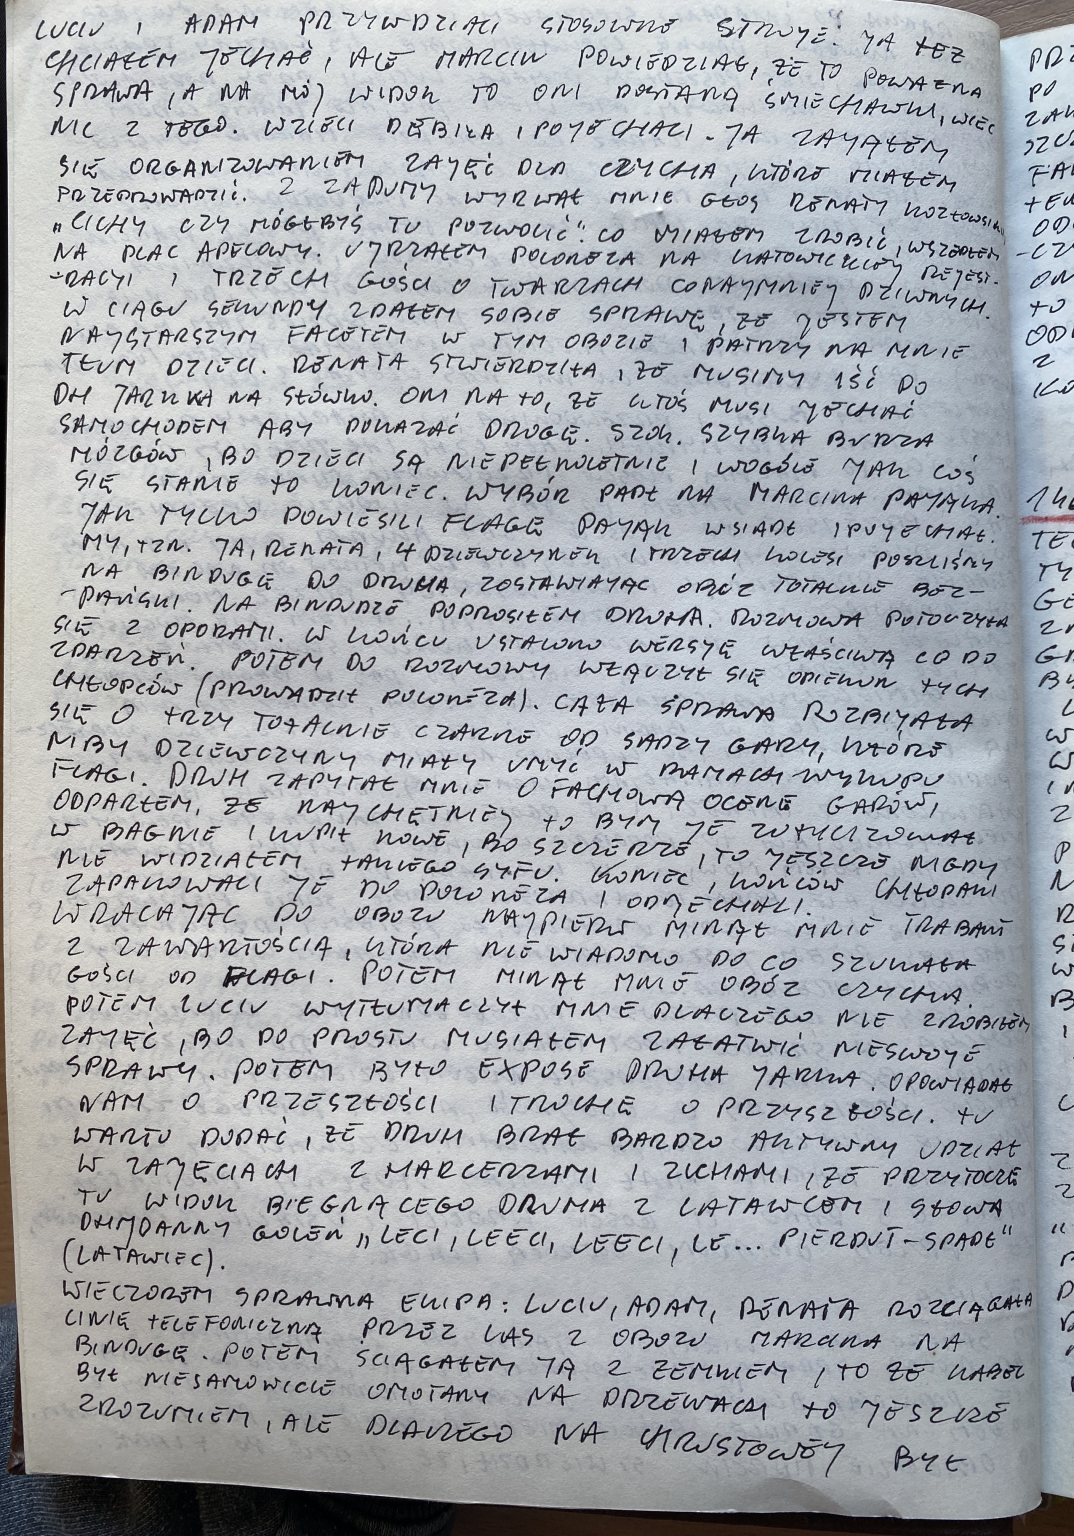 LUCIU I ADAM PRZYWDZIALI STOSOWNE STROJE. JA TEŻ
CHCIAŁEM JECHAĆ, ALE MARCIN POWIEDZIAŁ, ŻE TO POWAŻNA
SPRAWA, A NA MÓJ WIDOK TO ONI DOSTANĄ ŚMIECHAWKI, WIĘC
NIC Z TEGO. WZIELI DĘBIŁA I POJECHALI. JA ZAJĄŁEM
SIĘ ORGANIZOWANIEM ZAJĘĆ DLA CZYCHA, KTÓRE MIAŁEM
PRZEPROWADZIĆ. Z ZADUMY WYRWAŁ MNIE GŁOS RENATY KOZŁOWSKIEJ
„CICHY CZY MÓGŁBYŚ TU POZWOLIĆ". CO MIAŁEM ZROBIĆ, WSZEDŁEM
NA PLAC APELOWY. UJRZAŁEM POLONEZA NA KATOWICKIEJ REJEST-
-RACJI I TRZECH GOŚCI O TWARZACH CONAJMNIEJ DZIWNYCH.
W CIĄGU SEKUNDY ZDAŁEM SOBIE SPRAWĘ, ŻE JESTEM
NAJSTARSZYM FACETEM W TYM OBOZIE I PATRZY NA MNIE
TŁUM DZIECI. RENATA STWIERDZIŁA, ŻE MUSIMY IŚĆ DO
DH JARKA NA SŁÓWKO. ONI NA TO, ŻE KTOŚ MUSI JECHAĆ
SAMOCHODEM ABY POKAZAĆ DROGĘ. SZOK. SZYBKA BURZA
MÓZGÓW, BO DZIECI SĄ NIEPEŁNOLETNIE I WOGÓLE JAK COŚ
SIĘ STANIE TO KONIEC. WYBÓR PADŁ NA MARCINA PAJĄKA.
JAK TYLKO POWIESILI FLAGĘ PAJĄK WSIADŁ I POJECHAŁ.
MY, TZN. JA, RENATA, 4 DZIEWCZYNEK I TRZECH KOLESI POSZLIŚMY
NA BINDUGĘ DO DRUHA, ZOSTAWIAJĄC OBÓZ TOTALNIE BEZ-
-PAŃSKI. NA BINDUDZE POPROSIŁEM DRUHA. ROZMOWA POTOCZYŁA
SIĘ Z OPORAMI. W KOŃCU USTALONO WERSJĘ WŁAŚCIWĄ CO DO
ZDARZEŃ. POTEM DO ROZMOWY WŁĄCZYŁ SIĘ OPIEKUN TYCH
CHŁOPCÓW (PROWADZIŁ POLONEZA). CAŁA SPRAWA ROZBIJAŁA
SIĘ O TRZY TOTALNIE CZARNE OD SADZY GARY, KTÓRE
NIBY DZIEWCZYNY MIAŁY UMYĆ W RAMACH WYKUPU
FLAGI. DRUH ZAPYTAŁ MNIE O FACHOWĄ OCENĘ GARÓW,
ODPARŁEM, ŻE NAJCHĘTNIEJ TO BYM JE ZUTYLIZOWAŁ
W BAGNIE I KUPIŁ NOWE, BO SZCZERZE, TO JESZCZE NIGDY
NIE WIDZIAŁEM TAKIEGO SYFU. KONIEC, KOŃCÓW CHŁOPAKI
ZAPAKOWALI JE DO POLONEZA I ODJECHALI.
WRACAJĄC DO OBOZU NAJPIERW MINĄŁ MNIE TRABANT
Z ZAWARTOŚCIĄ, KTÓRA NIE WIADOMO DO CO SZUKAŁA
GOŚCI OD FLAGI. POTEM MINĄŁ MNIE OBÓZ CZYCHA.
POTEM LUCIU WYTŁUMACZYŁ MNIE DLACZEGO NIE ZROBIŁEM
ZAJĘĆ, BO DO PROSTU MUSIAŁEM ZAŁATWIĆ NIESWOJE
SPRAWY. POTEM BYŁO EXPOSE DRUHA JARKA. OPOWIADAŁ
NAM O PRZESZŁOŚCI I TROCHĘ O PRZYSZŁOŚCI. TU
WARTO DODAĆ, ŻE DRUH BRAŁ BARDZO AKTYWNY UDZIAŁ
W ZAJĘCIACH Z HARCERZAMI I ZUCHAMI, ŻE PRZYTOCZĘ
TU WIDOK BIEGNĄCEGO DRUHA Z LATAWCEM I SŁOWA
DANNY GOLEŃ „LECI, LEECI, LEECI, LE... PIERDUT-SPADŁ"
(LATAWIEC).
WIECZOREM SPRAWNA EKIPA: LUCIU, ADAM, RENATA ROZCIĄGAŁA
LINIĘ TELEFONICZNĄ PRZEZ LAS Z OBOZU MARCINA NA
BINDUGĘ. POTEM ŚCIĄGAŁEM JĄ Z ZEMKIEM, TO ŻE KABEL
BYŁ NIESAMOWICIE OMOTANY NA DRZEWACH TO JESZCZE
ZROZUMIEM, ALE DLACZEGO NA CHRUSTOWEJ BYŁ